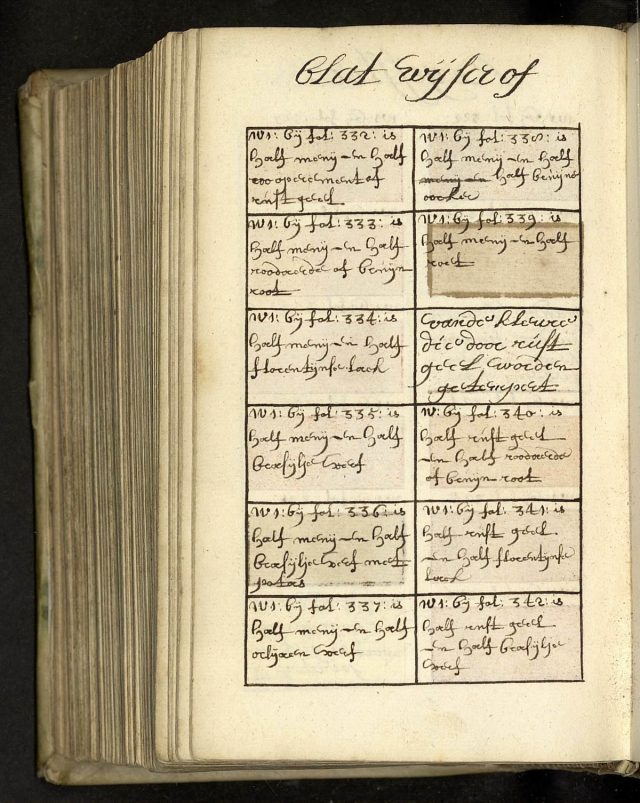 blat wijser of
W1: bij fol: 332: is
half menij en half
roooperement of
rust geel
W1: bij fol: 333: is
half menij en half
roodaerde of bruijn
root
W1: bij fol: 334: is
half menij en half
florentijnse lack
W1: bij fol: 335: is
half menij en half
brasijlje verf
W1: bij fol: 336: is
half menij en half
brasijlje verf met
potas
W1: bij fol: 337: is
half menij en half
orlijaen verf
W1: bij fol: 338: is
half menij en half
menij en half bruijne
oocker
W1: bij fol: 339: is
half menij en half
roet
vande kleure
die door rust
geel worden
getempert
W: bij fol: 340: is
half rust geel
en half roodaerde
of bruijn root
W1: bij fol: 341: is
half rust geel
en half florentijnse
lack
W1: bij fol: 342: is
half rust geel
en half brasijlje
verf